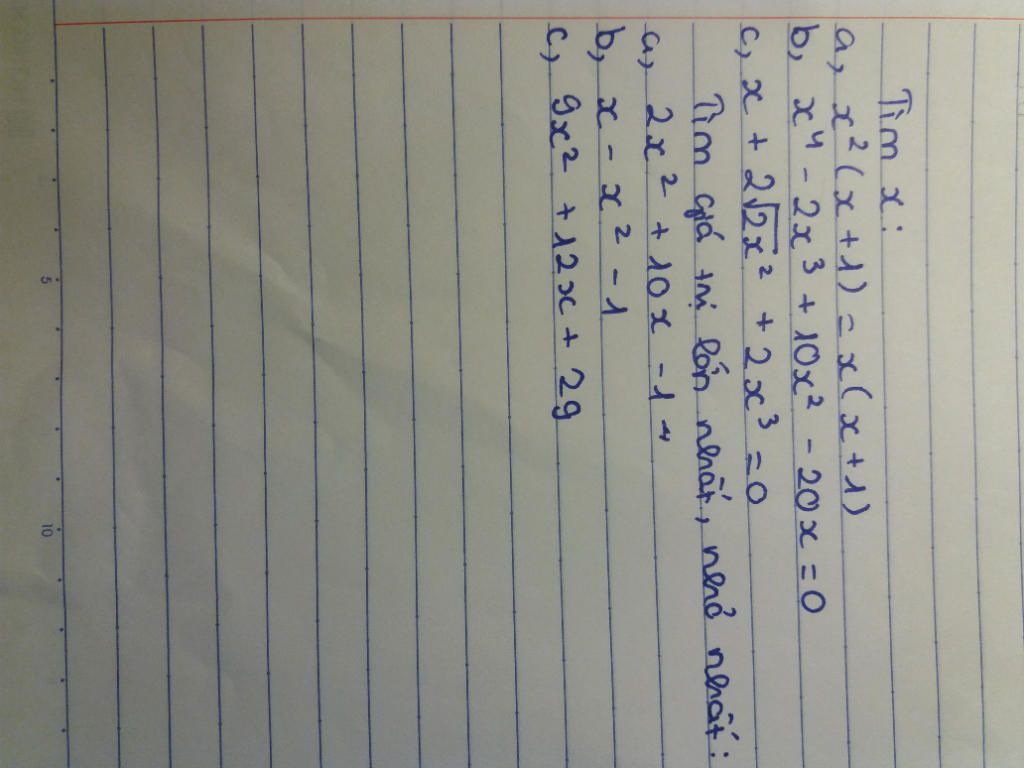 Tìm x:
a, x²(x+1) = x(x+1)
b, x⁴ - 2x³ + 10x² - 20x = 0
c, x + 2√2x² + 2x³ = 0
Tìm giá trị lớn nhất, nhỏ nhất:
a, 2x² + 10x - 1
b, x - x² - 1
c, 9x² + 12x + 29
5
10